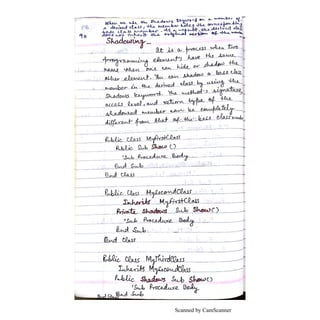 When we use the Shadows keyword on a member of
a derived class, the member hides the corresponding
base class member. As a result, the derived class
does not inherit the original version of the member
Shadowing -
It is a process when two
programming elements have the same
name then one can hide or shadow the
other element. You can shadow a base class
member in the derived class by using the
Shadows keyword. The method's signature
access level and return type of the
shadowed member can be completely
different from that of the base class member.
Public Class MyfirstClass
Public Sub Show()
'Sub Procedure Body
End Sub
End Class
Public Class MySecondClass
Inherits MyFirstClass
Private Shadows Sub Show()
'Sub Procedure Body
End Sub
End Class
Public Class MyThirdClass
Inherits MySecondClass
Public Shadows Sub Show()
'Sub Procedure Body
End Sub
Scanned by CamScanner